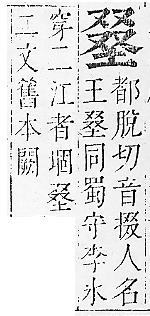 都脫切音掇人名
王同蜀守李氷
穿二江者堌
二文舊本闕